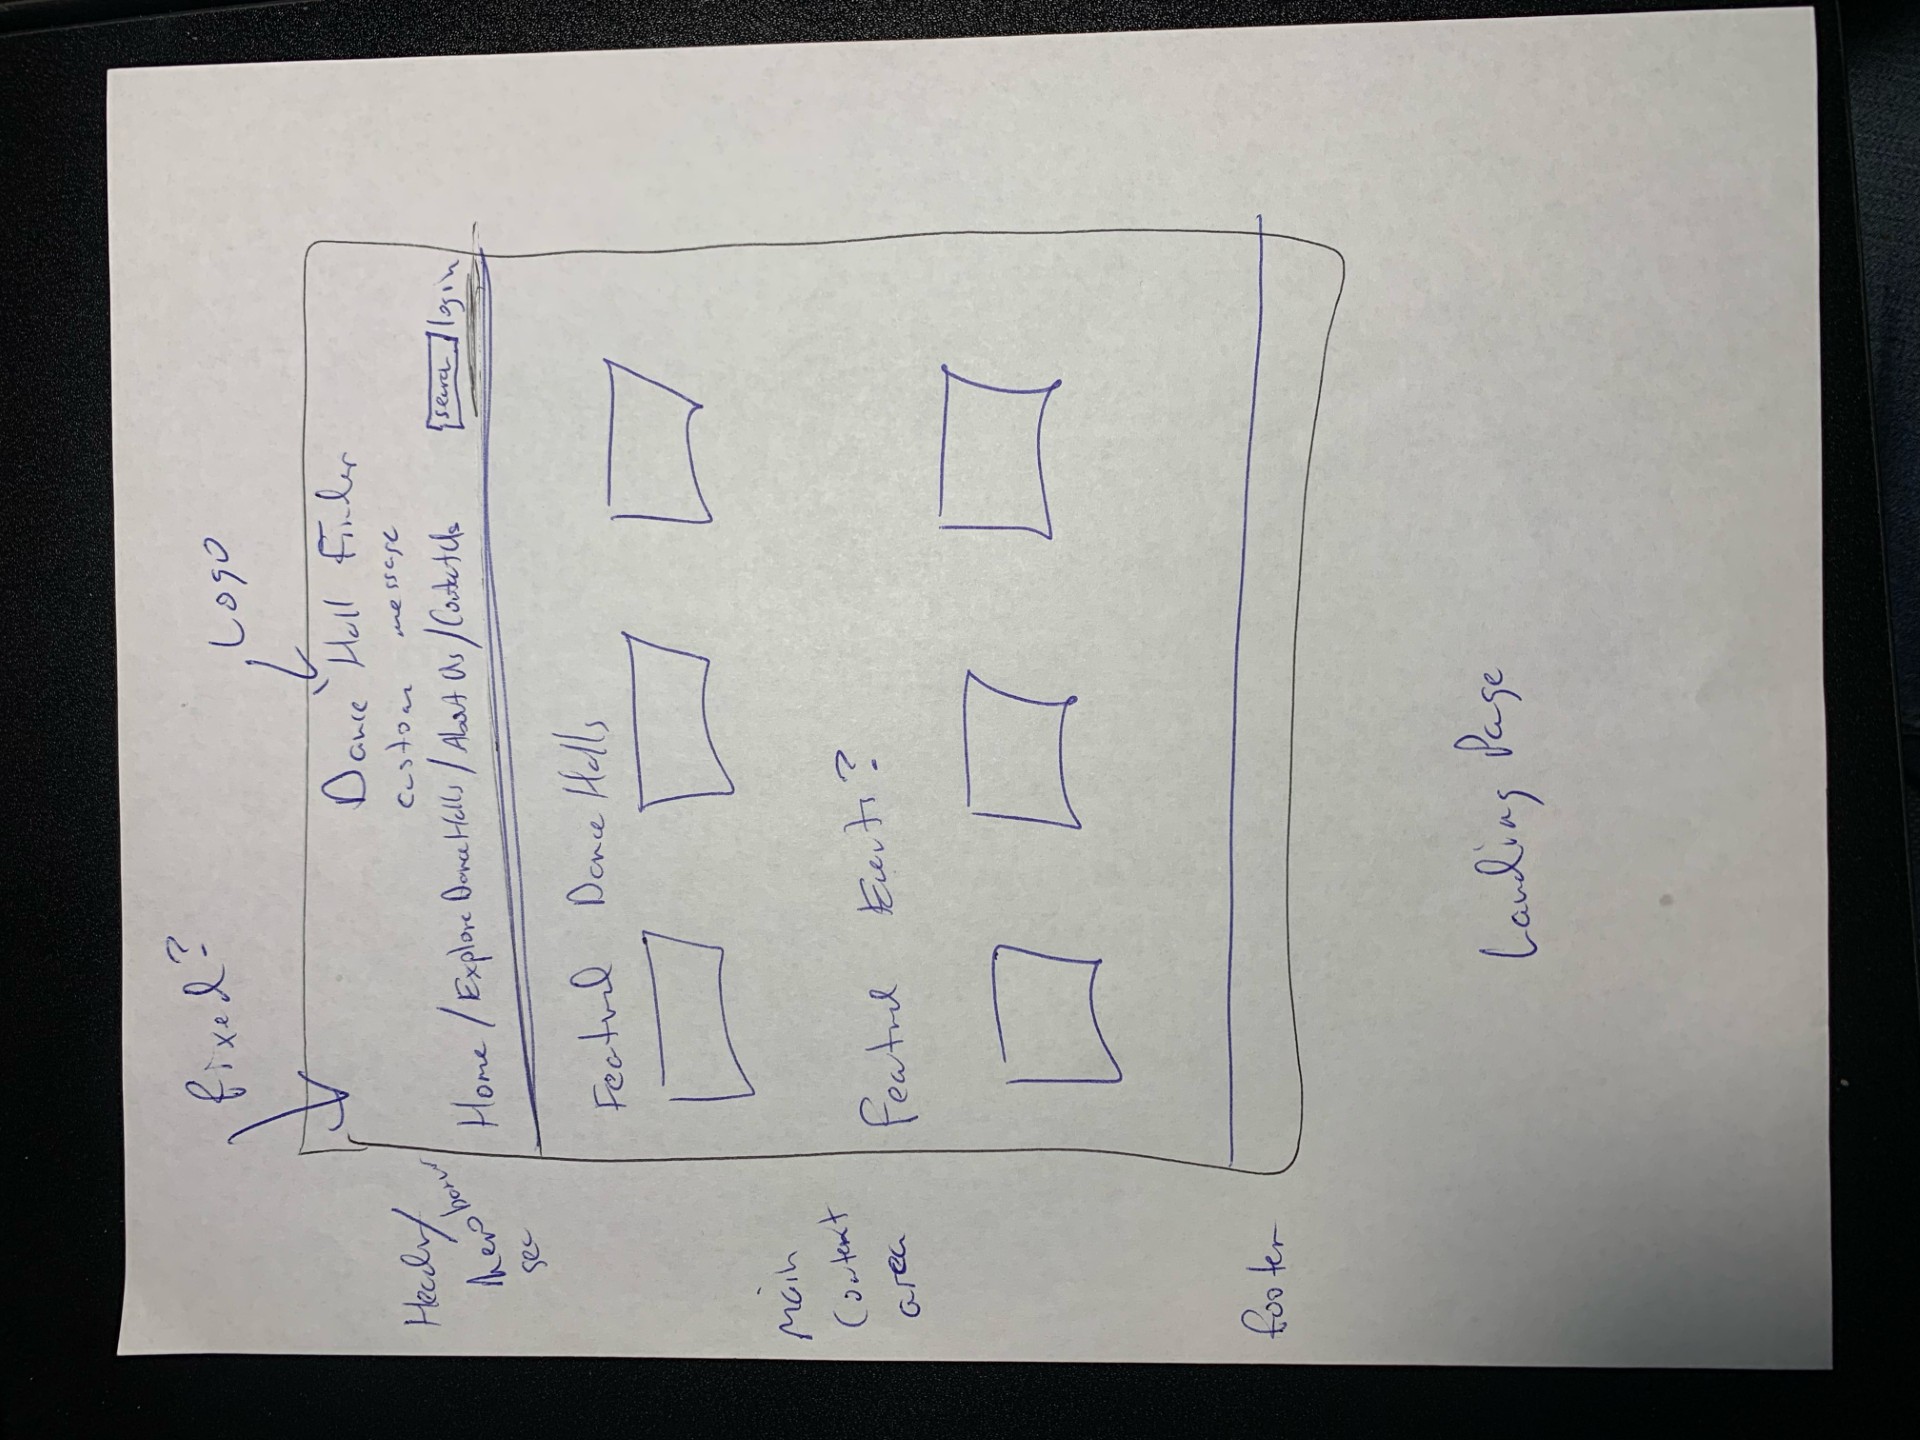 fixed?
Logo
Dance Hall Finder
custom message
Header/
hero banner
sec
Home / Explore Dance Halls / About Us / Contact Us
search
login
Featured Dance Halls
Main
Content
area
Featured Events?
footer
Landing Page